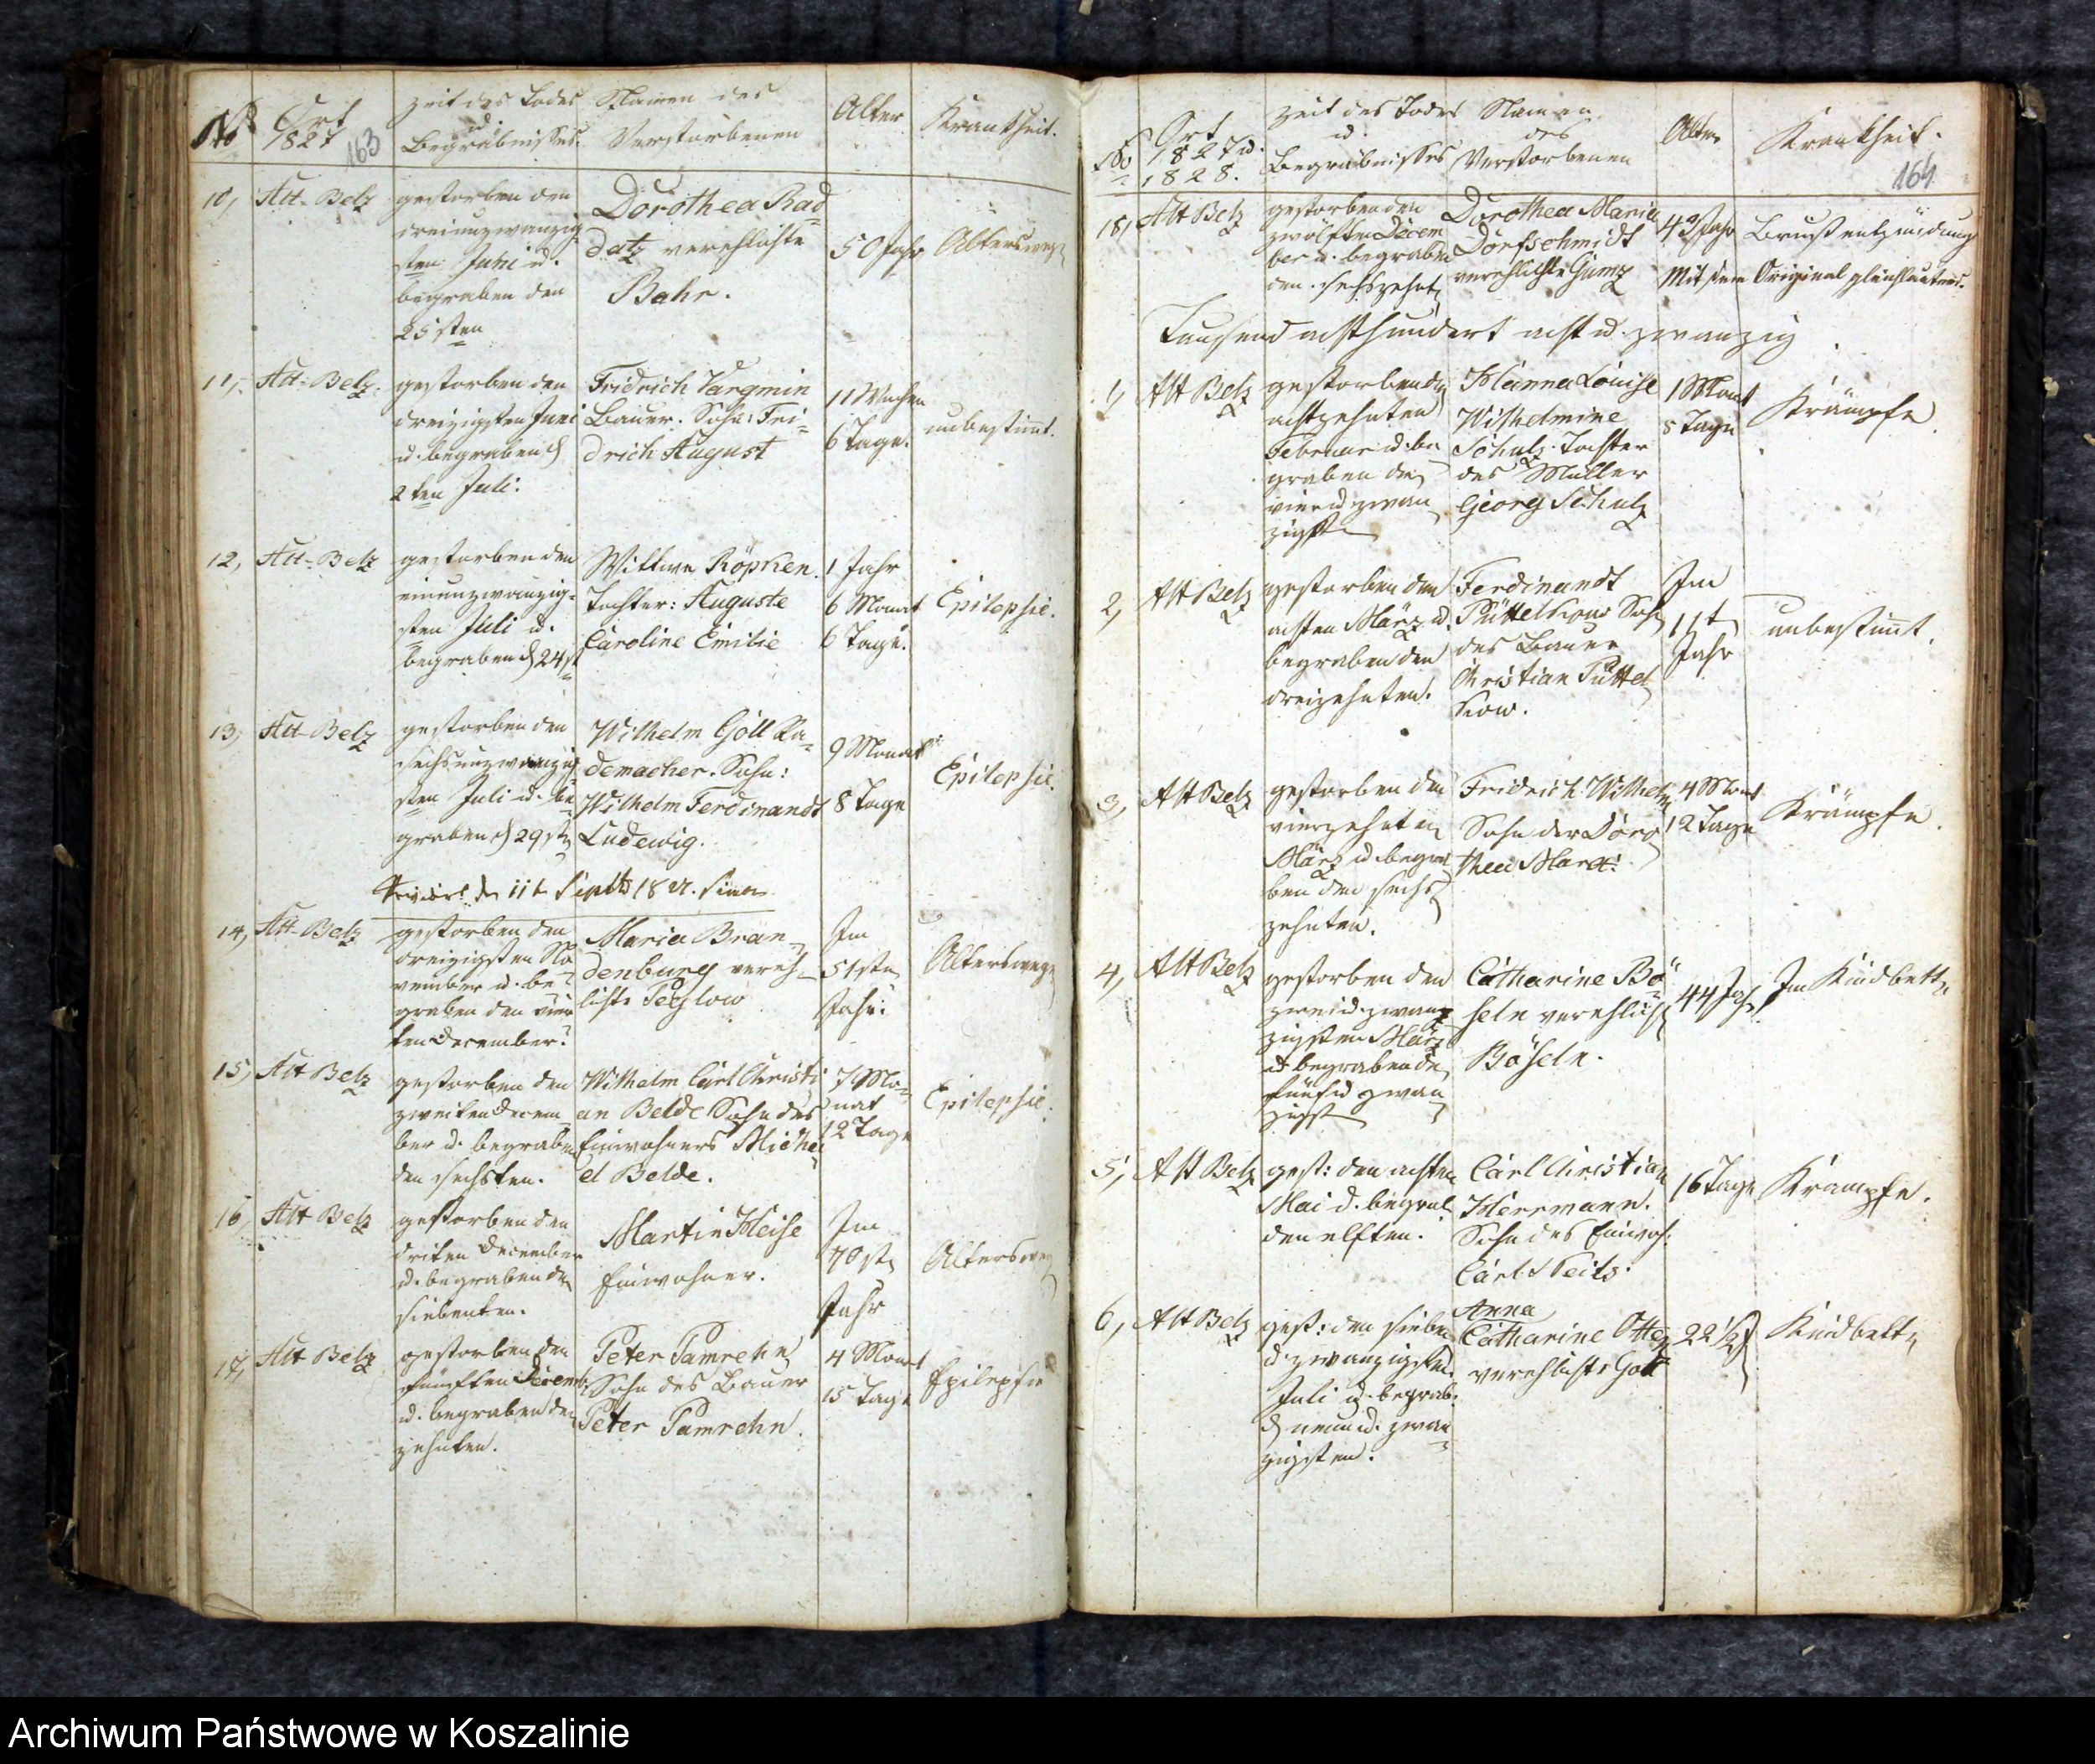 No
Ort
1827
163
Zeit des Todes
u.
Begräbnisses.
Namen des
Verstorbenen
Alter
Krankheit.
10, Alt-Belz
gestorben den
dreiunzwanzig-
sten Juni u.
begraben den
25sten
Dorothea Rad-
datz verehlichte
Bahr.
50 Jahr
11, Alt-Belz.
gestorben den
dreizigsten Juni
u. begraben d
2ten Juli.
Fridrich Vargmin
Bauer. Sohn: Fri-
drich August
11 Wochen
6 Tage.
unbestimt.
12, Alt-Belz
gestorben den
einunzwanzig-
sten Juli u.
begraben d 24st
Wittwe Röpken.
Tochter: Auguste
Caroline Emilie
1 Jahr
6 Monat
6 Tage.
Epilepsie.
13, Alt-Belz
gestorben den
sechsunzwanzig
sten Juli u. be-
graben d 29st
Wilhelm Göll Ra-
demacher. Sohn:
Wilhelm Ferdinandt
Ludewig.
9 Monat
8 Tage
Epilepsie.
14, Alt-Belz
gestorben den
dreizigsten No-
vember u. be-
graben den vier
ten December.
Maria Bran-
denburg vereh-
lichte
Im
51sten
Jahr.
15, Alt Belz
gestorben den
zweiten Decem-
ber u. begraben
den sechsten.
Wilhelm Carl Christi
an Belde Sohn des
Einwohners Micha-
el Belde.
7 Mo-
nat
12 Tage
Epilepsie.
16, Alt Belz
gestorben den
driten December
u. begraben den
siebenten.
Martin Heise
Einwohner.
Im
70st
Jahr
17, Alt Belz
gestorben den
fünften Decemb.
u. begraben den
zehnten.
Peter Pamrehn
Sohn des Bauer
Peter Pamrehn.
4 Monat
15 Tage
Epilepsie
No
Ort
1827 u.
1828.
Zeit des Todes
u.
Begräbnisses
Namen
des
Verstorbenen
Alter
Krankheit.
164
18, Alt Belz
gestorben den
zwölften Decem
ber u. begraben
den sechszehnt
Dorothea Maria
Dorfschmidt
verehlichte Gumz
Brustentzündung
Mit dem Original gleichlautend.
Tausend achthundert acht u. zwanzig
1, Alt Belz
gestorben den
achtzehnten
Februar u. be
graben den
vier u. zwan
zigst
Hanna Louise
Wilhelmine
Schulz. Tochter
des Müller
Georg Schulz
1 Monat
8 Tage
Krämpfe.
2, Alt Belz
gestorben den
achten März u.
begraben den
dreizehnten.
Ferdinandt
Püttelkow Sohn
des Bauer
Christian Püttel
kow.
Im
11t
Jahr
unbestimt.
3, Alt Belz
gestorben den
vierzehnten
März u. begra
ben den sechs
zehnten.
Fridrich Wilhelm
Sohn der Doro
thea
4 Monat
12 Tage
Krämpfe.
4, Alt Belz
gestorben den
zwei u. zwan
zigsten März
u. begraben den
fünf u. zwan
zigst
Catharine Bö-
seln verehlicht
Böseln.
44 Jahr
Im Kindbett
5, Alt Belz
gest: den achten
Mai u. begrab.
den elften.
Carl Christian
Herrmann.
Sohn des Einwoh.
Carl
16 Tage
Krämpfe.
6, Alt Belz
gest: den sieben
u. zwanzigsten
Juli u. begrab.
d neun u. zwan-
zigsten.
Anna
Catharine Otte
verehlichte Gott
22 ½ J
Kindbett
Archiwum Państwowe w Koszalinie